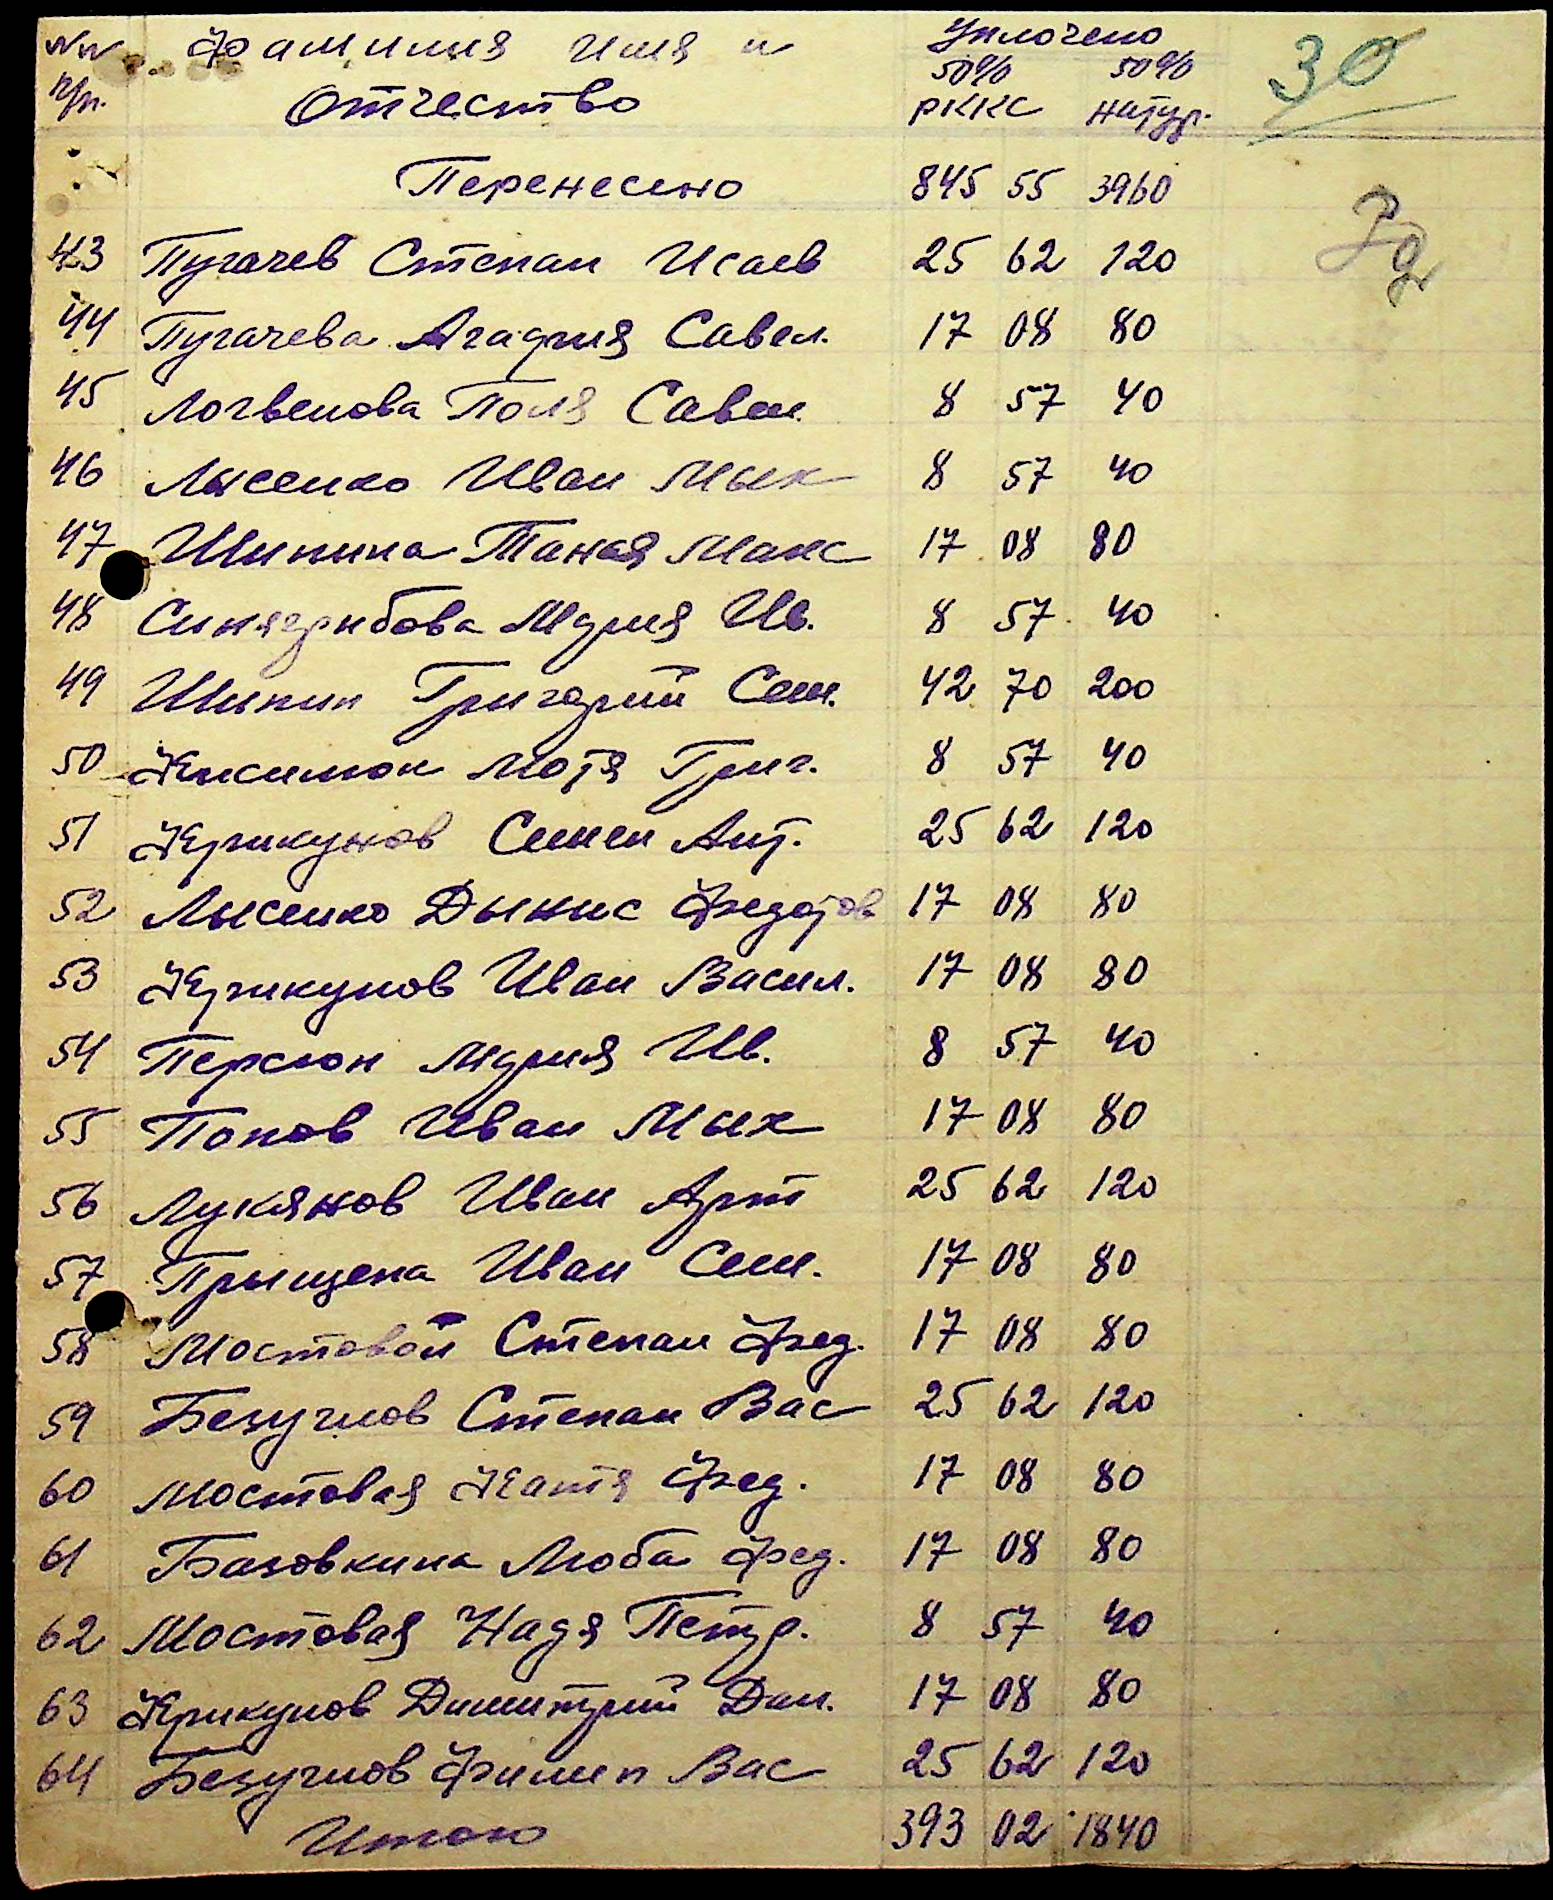 NN Фамилия имя и Уплочено
п/п. Отчество 50% 50%
РККС натур.
30
Перенесено 845 55 3960
43 Пугачев Степан Исаев 25 62 120
44 Пугачева Агафия Савел. 17 08 80
45 Логвенова Поля Савел. 8 57 40
46 Лысенко Иван Мых 8 57 40
47 Шипина Таная Макс 17 08 80
48 Синягрибова Мария Ив. 8 57 40
49 Шипин Григорий Сем. 42 70 200
50 Мотя Григ. 8 57 40
51 Крикунов Семен Ант. 25 62 120
52 Лысенко Дынис Федотов 17 08 80
53 Крикунов Иван Васил. 17 08 80
54 Персюн Мария Ив. 8 57 40
55 Попов Иван Мых 17 08 80
56 Лукянов Иван Арт 25 62 120
57 Прыщепа Иван Сем. 17 08 80
58 Мостовой Степан Фед. 17 08 80
59 Безуглов Степан Вас 25 62 120
60 Мостовая Катя Фед. 17 08 80
61 Базовкина Люба Фед. 17 08 80
62 Мостовая Надя Петр. 8 57 40
63 Крикунов Димитрий Дан. 17 08 80
64 Безуглов Филип Вас 25 62 120
Итого 393 02 1840